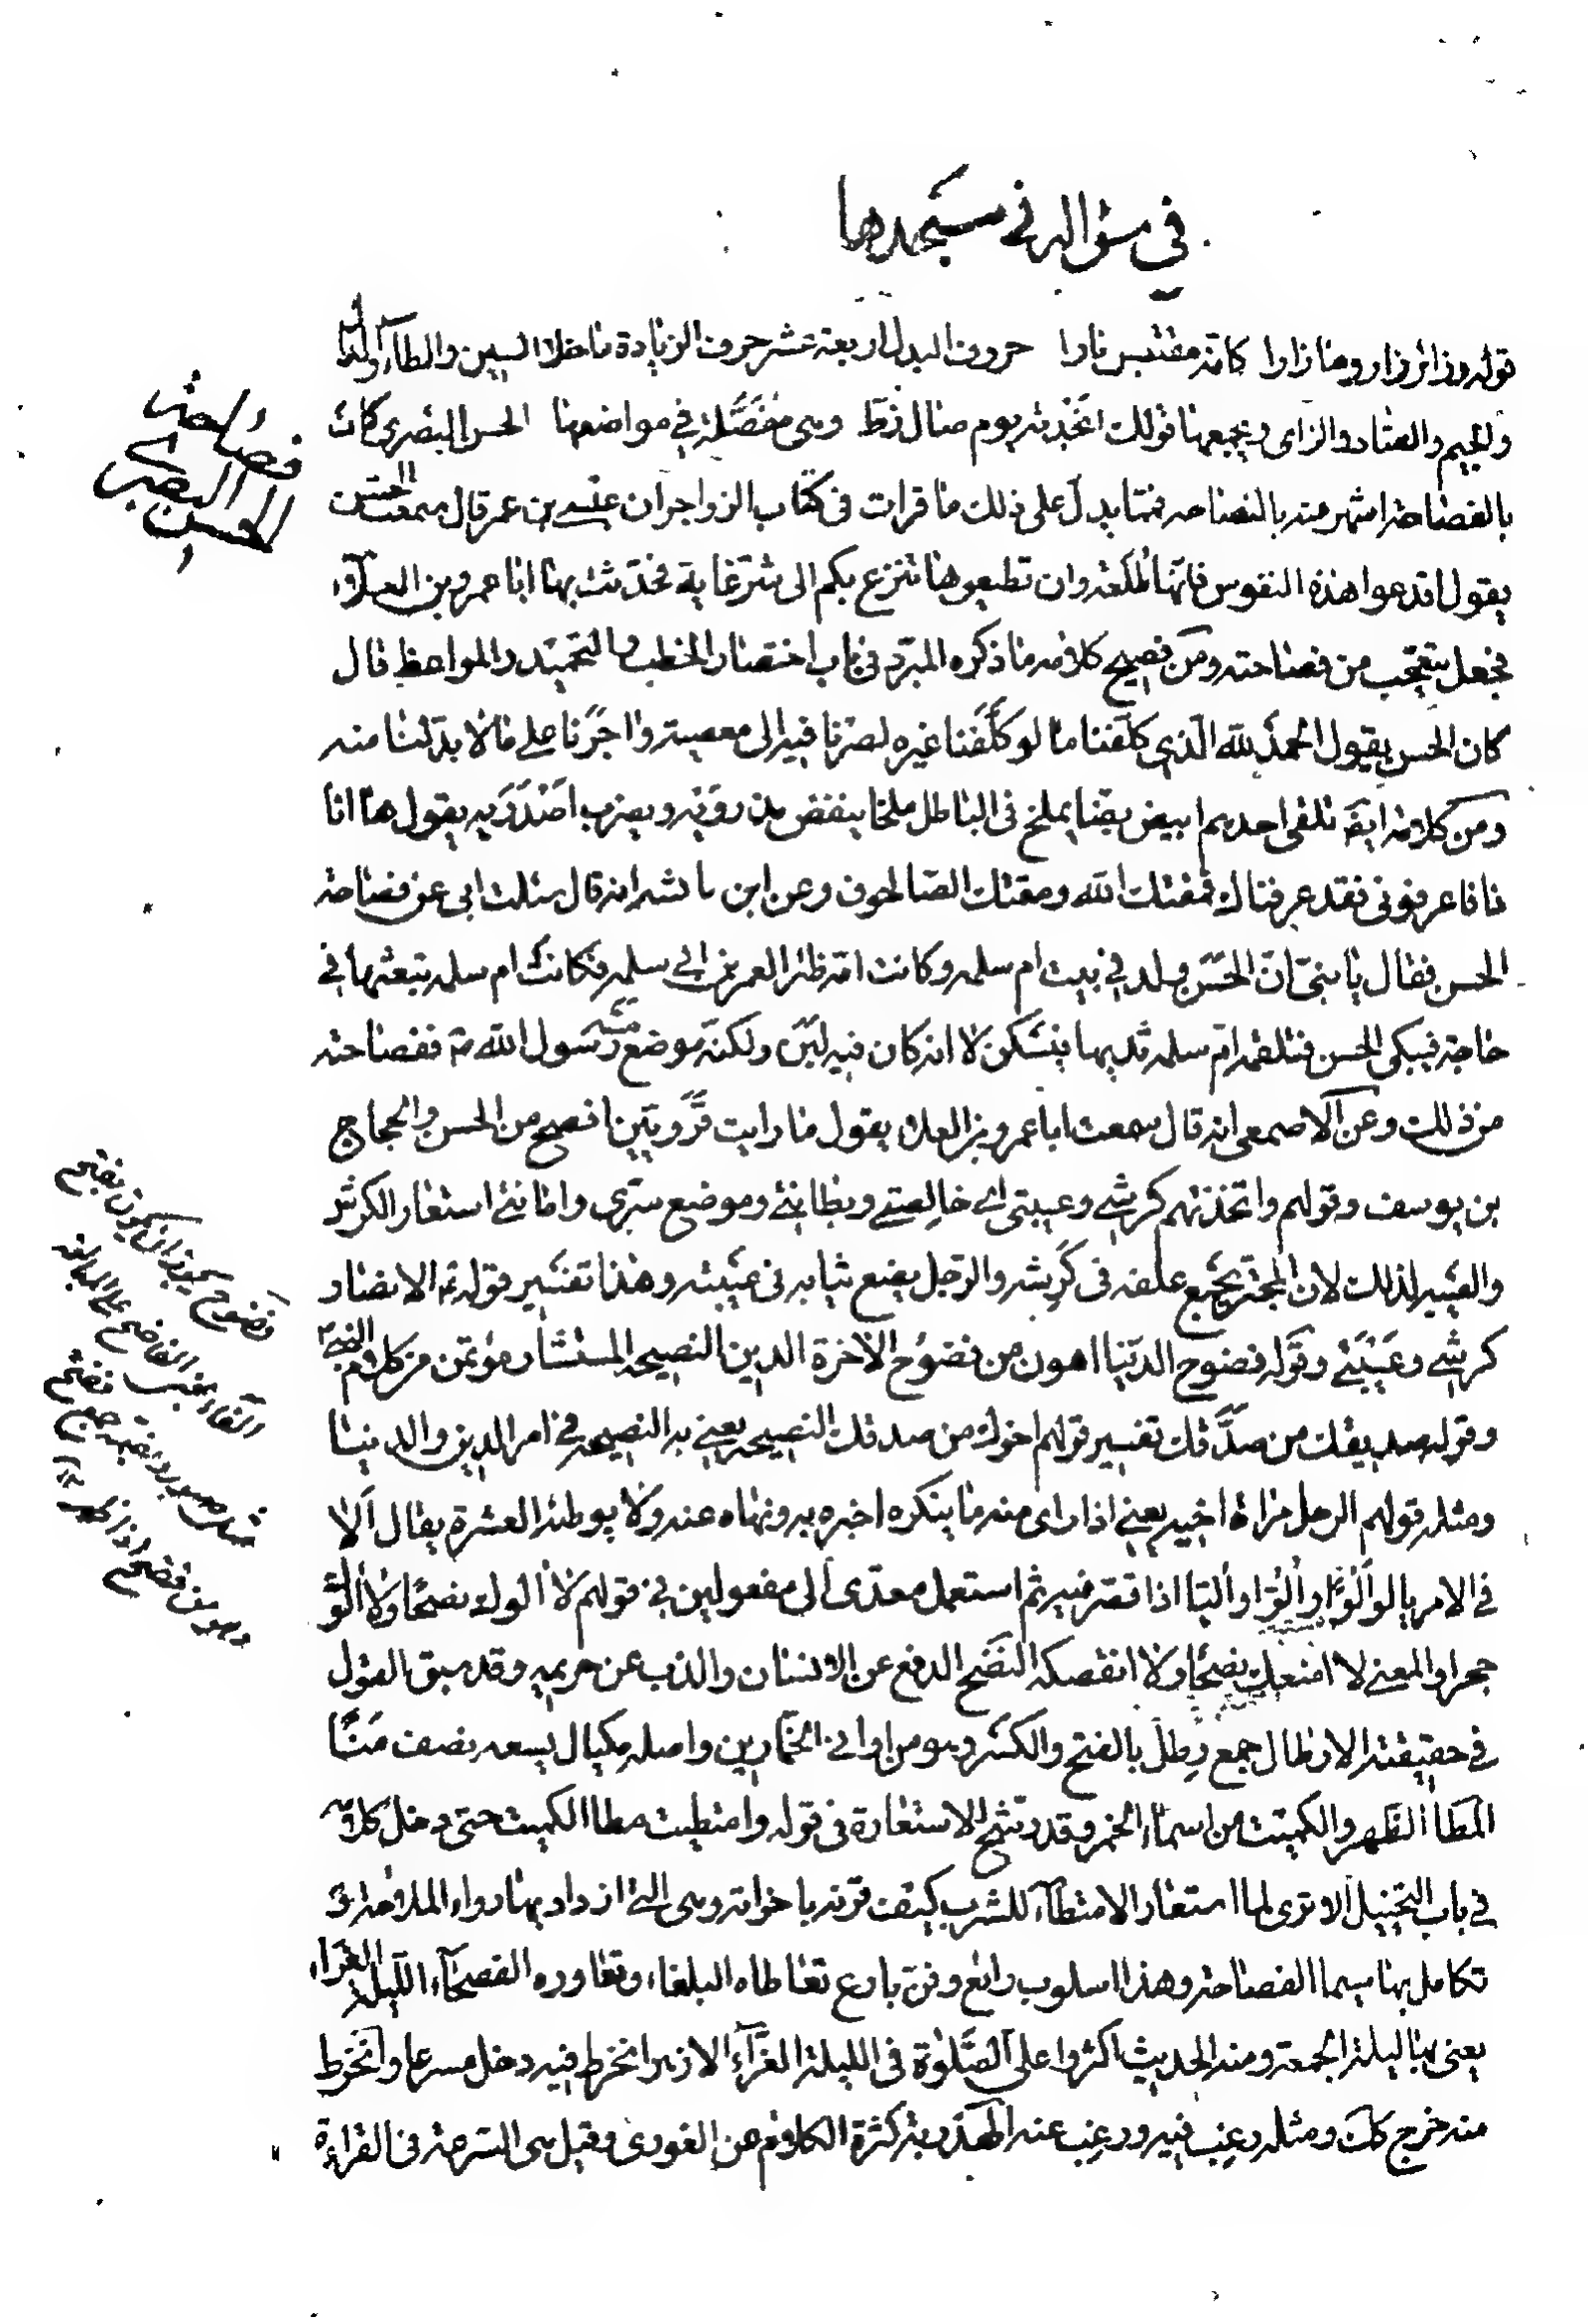 في سؤاله ني ستجدها
قوله وزائر زار وما زارا كانه مقتبس نارا حروف البدل اربعة عشر حروف الزيادة ما خلا السين والطاء والدال
والجيم والصاد والزاى ويجمعها قولك انجدته يوم صال زط وهى مفصلة في مواضعها الحسن البصرى كان
بالفصاحة اشهر منه بالنصاحه فمما يدل على ذلك ما قرات فى كتاب الزواجر ان عيسى بن عمر قال سمعت الحسن
يقول اقدعوا هذه النفوس فانها طلعة وان تطيعوها تنزع بكم الى شر غاية فحدثت بها ابا عمرو بن العلاء
فجعل يتعجب من فصاحته ومن فصيح كلامه ما ذكره المبرد فى باب اختصار الخطب والتحميد والمواعظ قال
كان الحسن يقول الحمد لله الذي كلفنا ما لو كلفنا غيره لصرنا فيه الى معصيته واجرنا على ما لا بد لنا منه
ومن كلامه ايضا تلقى احدهم ابيض بضا يملخ فى الباطل ملخا ينفض مذرويه ويضرب اصدريه يقول ها انا
ذا فاعرفونى فقد عرفناك فمقتك الله ومقتك الصالحون وعن ابن عائشه انه قال سئلت ابى عن فصاحة
الحسن فقال يا بنى ان الحسن ولد في بيت ام سلمه وكانت امه ظئرا لعمر بن ابي سلمه فكانت ام سلمه تبعثها في
حاجة فيبكى الحسن فتلقمه ام سلمه ثديها فيسكن لا انه كان فيه لبن ولكنه موضع مسه رسول الله ص ففصاحته
من ذلك وعن الاصمعى انه قال سمعت ابا عمرو بن العلاء يقول ما رايت قرويين افصح من الحسن والحجاج
بن يوسف وقولهم واتخذتهم كرشي وعيبتى اى خالصتي وبطانتي وموضع سرى وامانتي استعار الكرش
والعيبة لذلك لان المجتر يجمع علفه فى كرشه والرجل يضع ثيابه فى عيبته وهذا تفسير قوله ع الانصار
كرشي وعيبتي وقوله فضوح الدنيا اهون من فضوح الاخرة الدين النصيحة المستشار مؤتمن من كلام النبي
وقوله صديقك من صدقك تفسير قولهم اخوك من صدقك النصيحة يعني به النصيحة في امر الدين والدنيا
ومثله قولهم الرجل مراة اخيه يعني اذا راى منه ما ينكره اخبره به ونهاه عنه ولا يوطئه العشرة يقال الا
في الامر يالو الوا والوا واليا اذا قصر فيه ثم استعمل معدى الى مفعولين في قولهم لا الوك نصحا ولا الوك
جهدا والمعنى لا امنعك نصحا ولا انقصكه النضح الدفع عن الانسان والذب عن حريمه وقد سبق القول
في حقيقته الارطال جمع رطل بالفتح والكسر وهو من اواني الخمارين واصله مكيال يسعه نصف منا
المطا الظهر والكميت من اسماء الخمر وقد رشح الاستعارة فى قوله وامتطيت مطا الكميت حتى دخل كلامه
في باب التخييل الا ترى لما استعار الامتطاء للشرب كيف قرنه باخواته وهى التي ازداد بها رواء الملاحة و
تكامل بها سيما الفصاحة وهذا اسلوب رائع وفن بارع تعاطاه البلغاء وتعاوره الفصحاء الليلة الغراء
يعنى بها ليلة الجمعة ومنه الحديث اكثروا على الصلوة فى الليلة الغراء الازهر انخرط فيه دخل مسرعا وانخرط
منه خرج كك ومثله رغب فيه ورغب عنه الهذربة كثرة الكلام عن الغورى وقيل هى السرعة فى القراءة
فصاحة
الحسن البصرى
فضوح يجوز ان يكون بفتح
الفاء بمعنى الفاضح على المبالغه